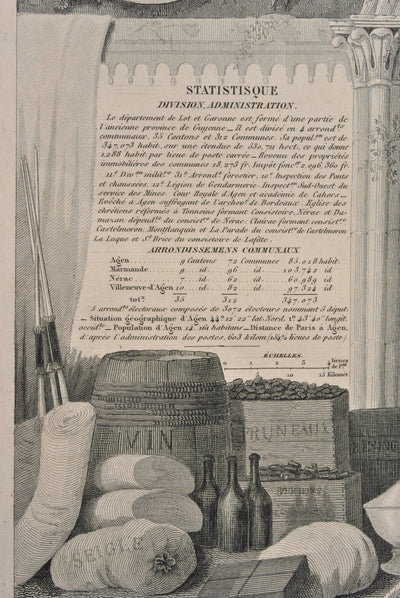 STATISTISQUE
DIVISION, ADMINISTRATION.
Le département de Lot et Garonne est formé d'une partie de
l'ancienne province de Guyenne _ Il est divisé en 4 arrond.ts
communaux, 35 Cantons et 312 Communes. Sa popul.on est de
347,073 habit. sur une étendue de 530,711 hect. ce qui donne
1,288 habit. par lieue de poste carrée _ Revenu des propriétés
immobilières des communes 18,273 fr. Impôt fonc.er 2,696,360 fr.
11.e Div.on milit.re 31.e Arrond.t forestier, 10.e Inspection des Ponts
et chaussées, 12.e Légion de Gendarmerie. Inspect.on Sud-Ouest du
service des Mines. Cour Royale d'Agen et académie de Cahors _
Evêché à Agen suffragant de l'archev.é de Bordeaux. Eglise des
chrétiens réformés à Tonneins formant Consistoire. Nérac et Da-
mazan dépend.t du consist.re de Nérac; Clairac formant consist.re
Castelmoron, Montflanquin et La Parade du consist.re de Castelmoron
La Luque et S.t Brice du consistoire de Lafitte.
ARRONDISSEMENS COMMUNAUX
Agen 9 Cantons 72 Communes 85,018 habit.
Marmande 9 id. 96 id. 103,742 id
Nérac 7 id. 62 id. 60,989 id.
Villeneuve-d'Agen 10 id. 82 id. 97,324 id.
tot.x 35 312 347,073
5 arrond.ts électoraux composés de 3072 électeurs nommant 5 déput.
_ Situation géographique d'Agen 44.° 12' 22" lat. Nord. 1.° 43' 40" longit.
occid.le _ Population d'Agen 14,161 habitans _ Distance de Paris à Agen,
d'après l'administration des postes, 603 kilom (154 ½ lieues de poste)
ÉCHELLES.
0 1 2 3 4 lieues
de P.te
5 10 15 Kilomèt.
VIN
PRUNEAUX
BOUCHONS
SEIGLE